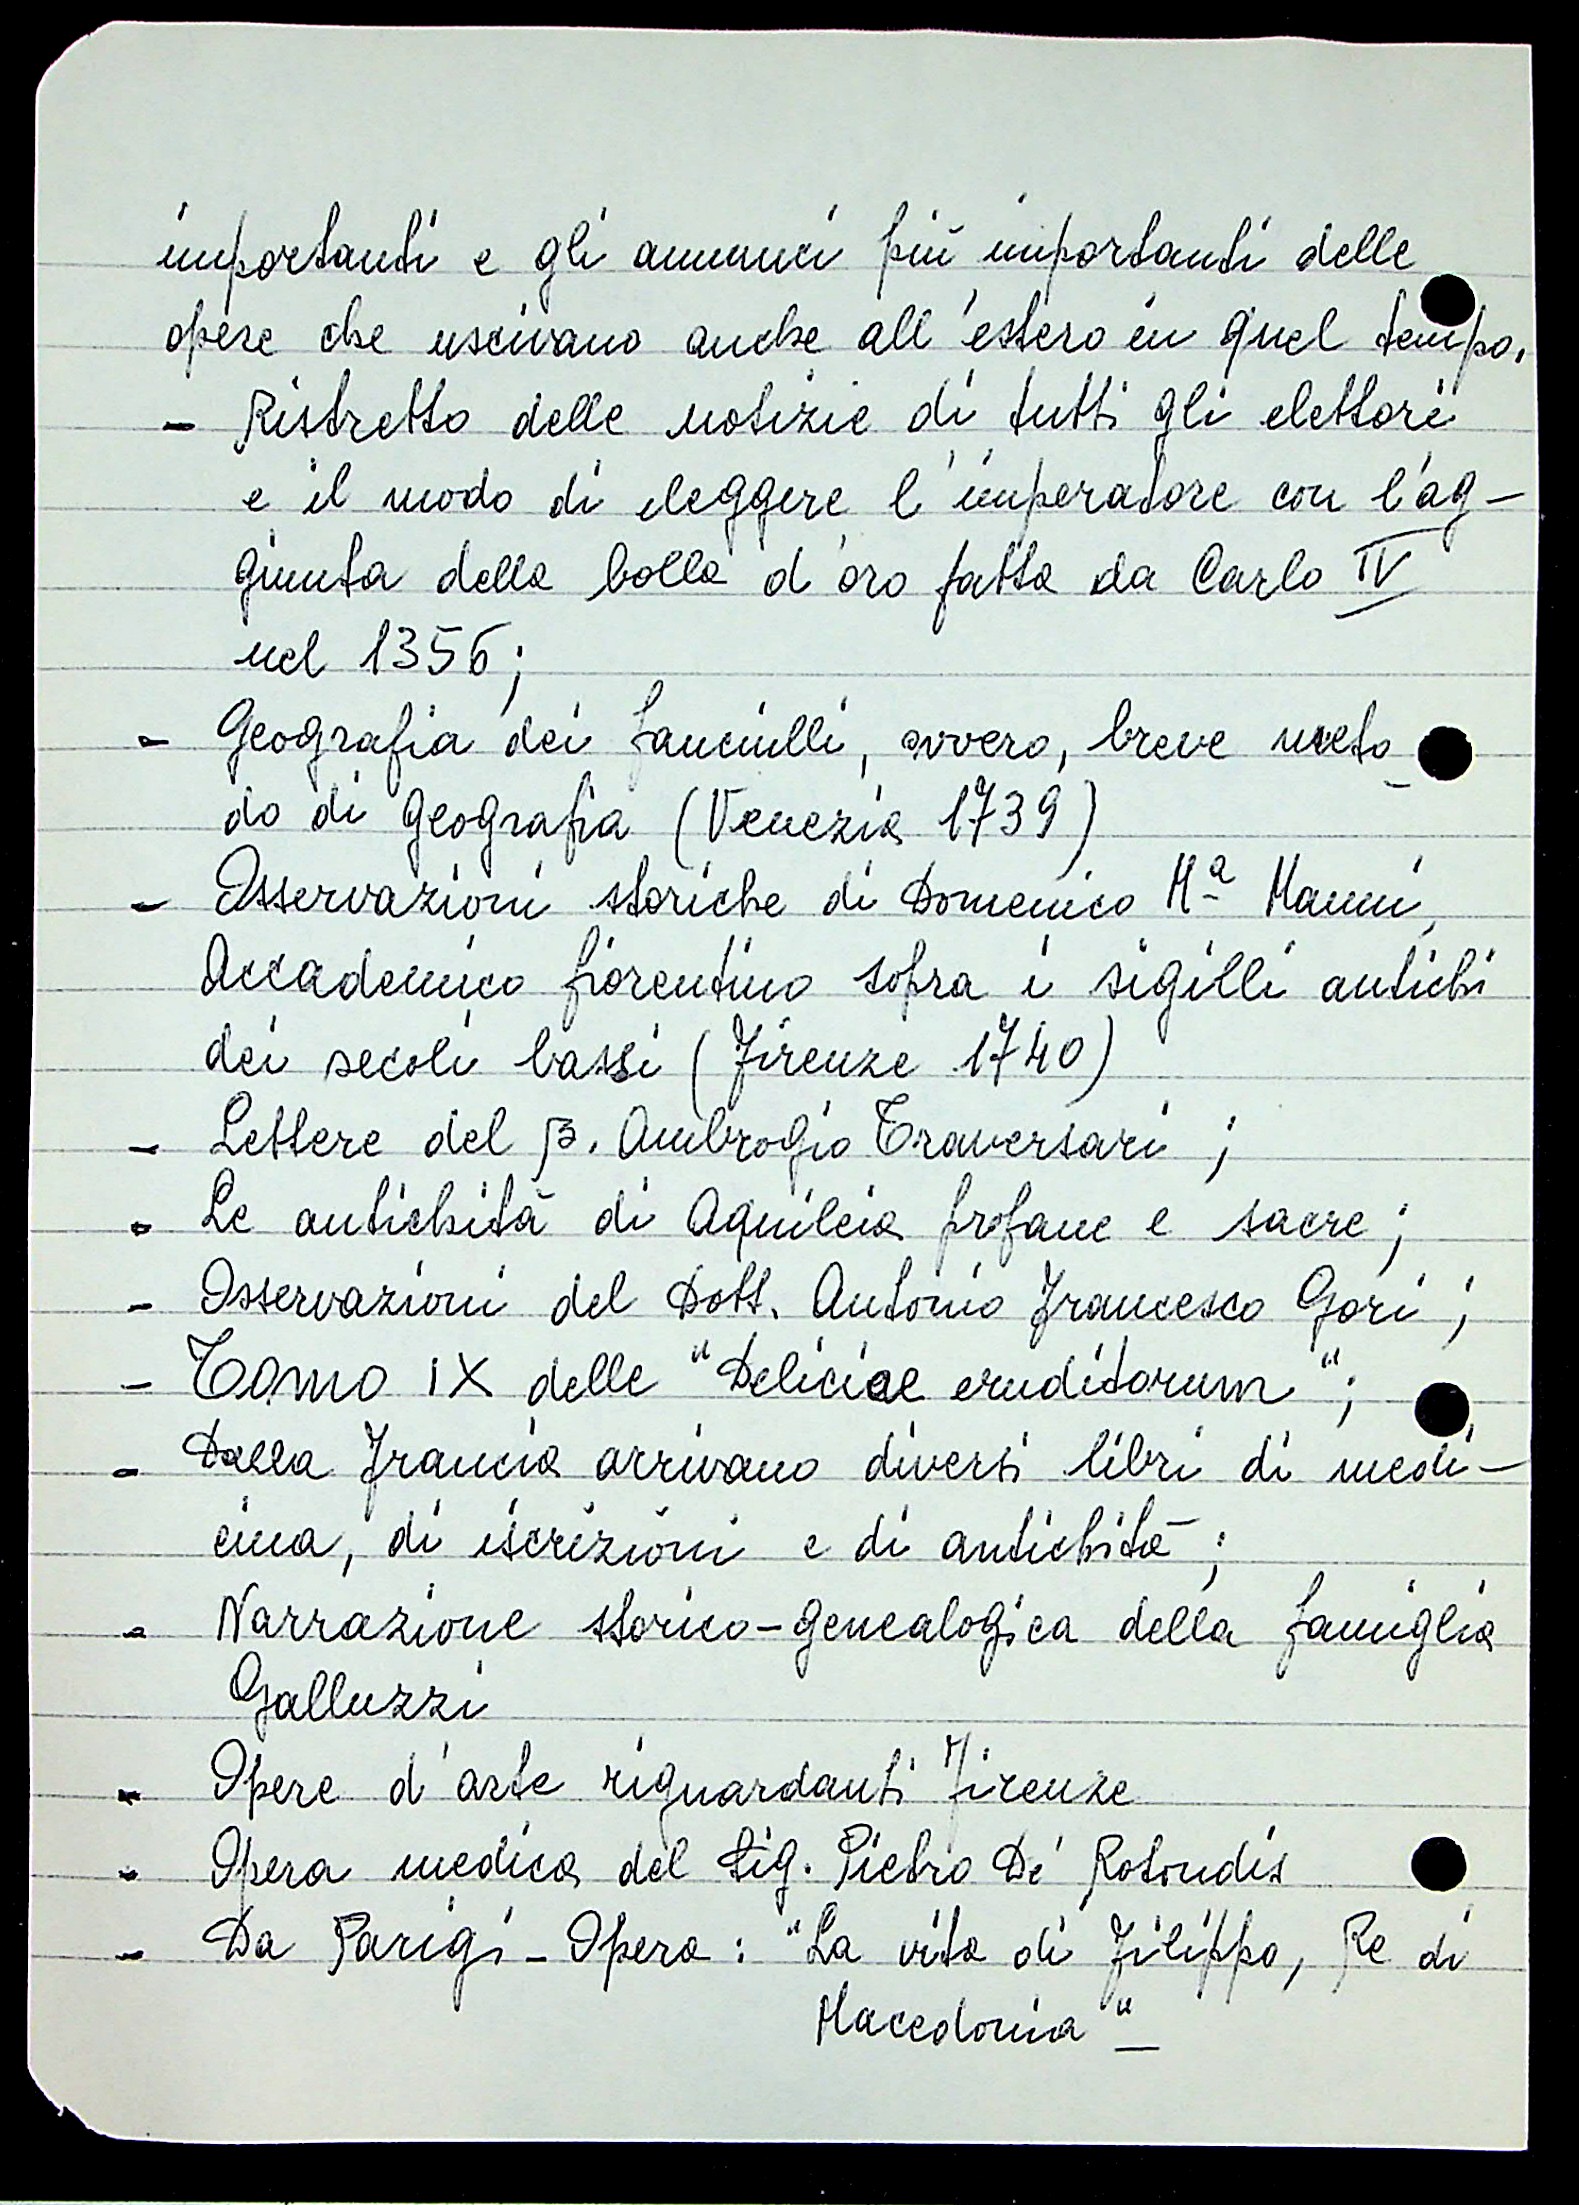 importanti e gli annunci più importanti delle
opere che uscivano anche all'estero in quel tempo.
- Ristretto delle notizie di tutti gli elettori
e il modo di eleggere l'imperatore con l'ag-
giunta della bolla d'oro fatta da Carlo IV
nel 1356;
- Geografia dei fanciulli, ovvero, breve meto_
do di geografia (Venezia 1739)
- Osservazioni storiche di Domenico Mª Manni,
Accademico fiorentino sopra i sigilli antichi
dei secoli bassi (Firenze 1740)
- Lettere del B. Ambrogio Traversari;
- Le antichità di Aquileia profane e sacre;
- Osservazioni del Dott. Antonio Francesco Gori;
- Tomo IX delle "Deliciae eruditorum";
- Dalla Francia arrivano diversi libri di medi-
cina, di iscrizioni e di antichità;
- Narrazione storico-genealogica della famiglia
Galluzzi
- Opere d'arte riguardanti Firenze
- Opera medica del Sig. Pietro De' Rotondis
- Da Parigi - Opera: "La vita di Filippo, Re di
Macedonia" _